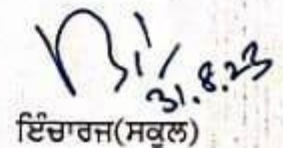 31.8.23
ਇੰਚਾਰਜ(ਸਕੂਲ)